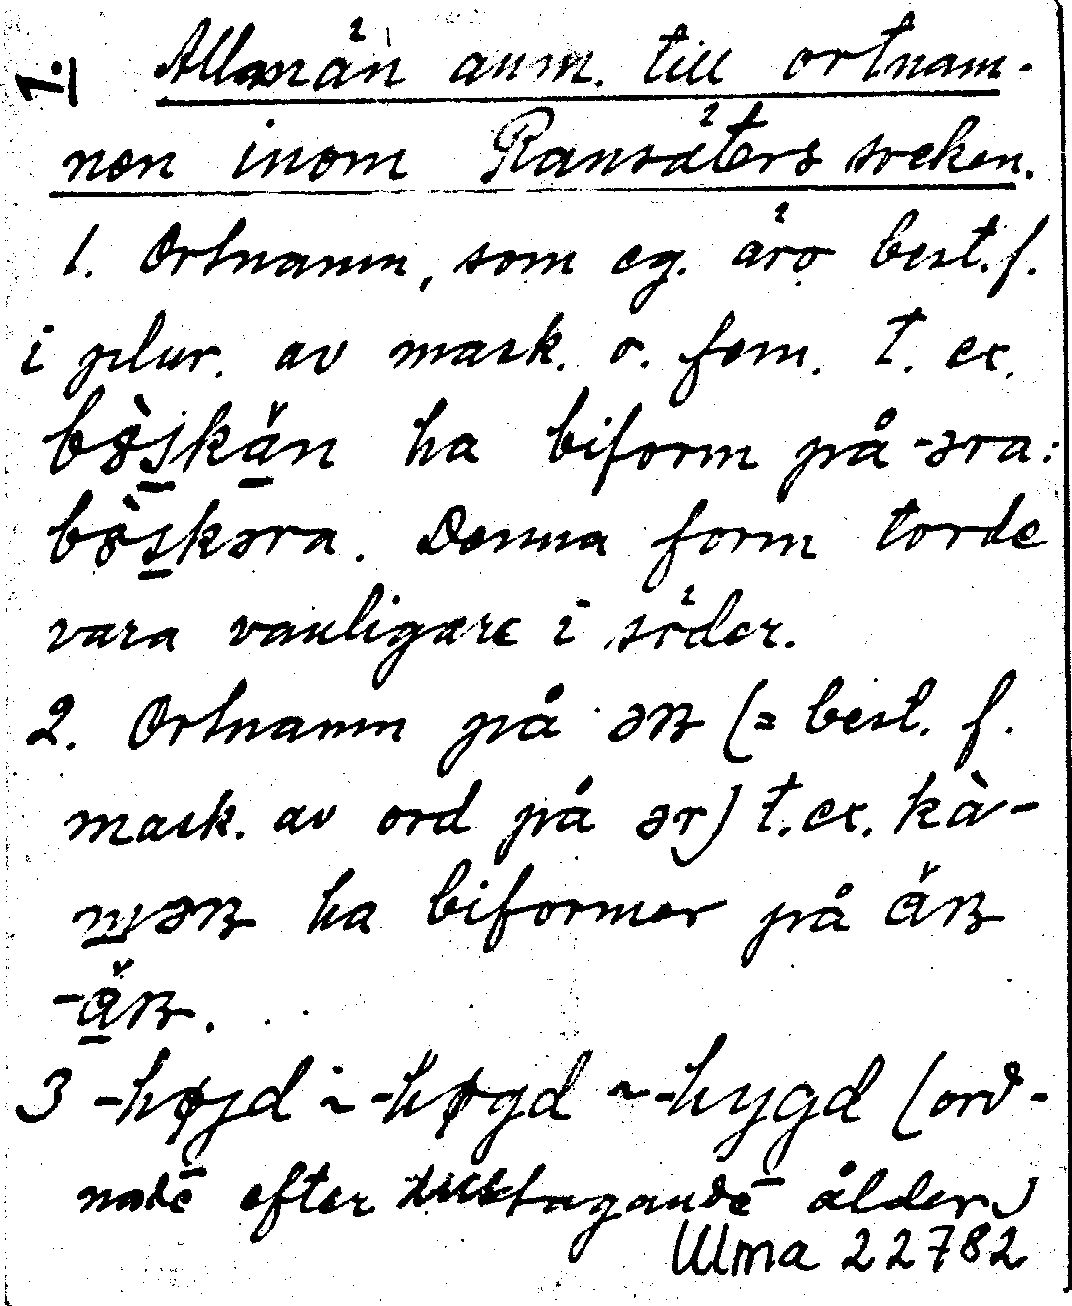 1. Allmän anm. till ortnam-
nen inom Ransäters socken.
1. Ortnamn, som eg. äro best. f.
i plur. av mask. o. fem. t. ex.
bö̀skän ha biform på -əra:
bö̀skəra. Denna form torde
vara vanligare i söder.
2. Ortnamn på əʀ (= best. f.
mask. av ord på ər) t. ex. kà-
ha biformer på
3 -højd ~ -høgd ~ -hygd (ord-
nade efter tilltagande ålder)
Ulma 22782